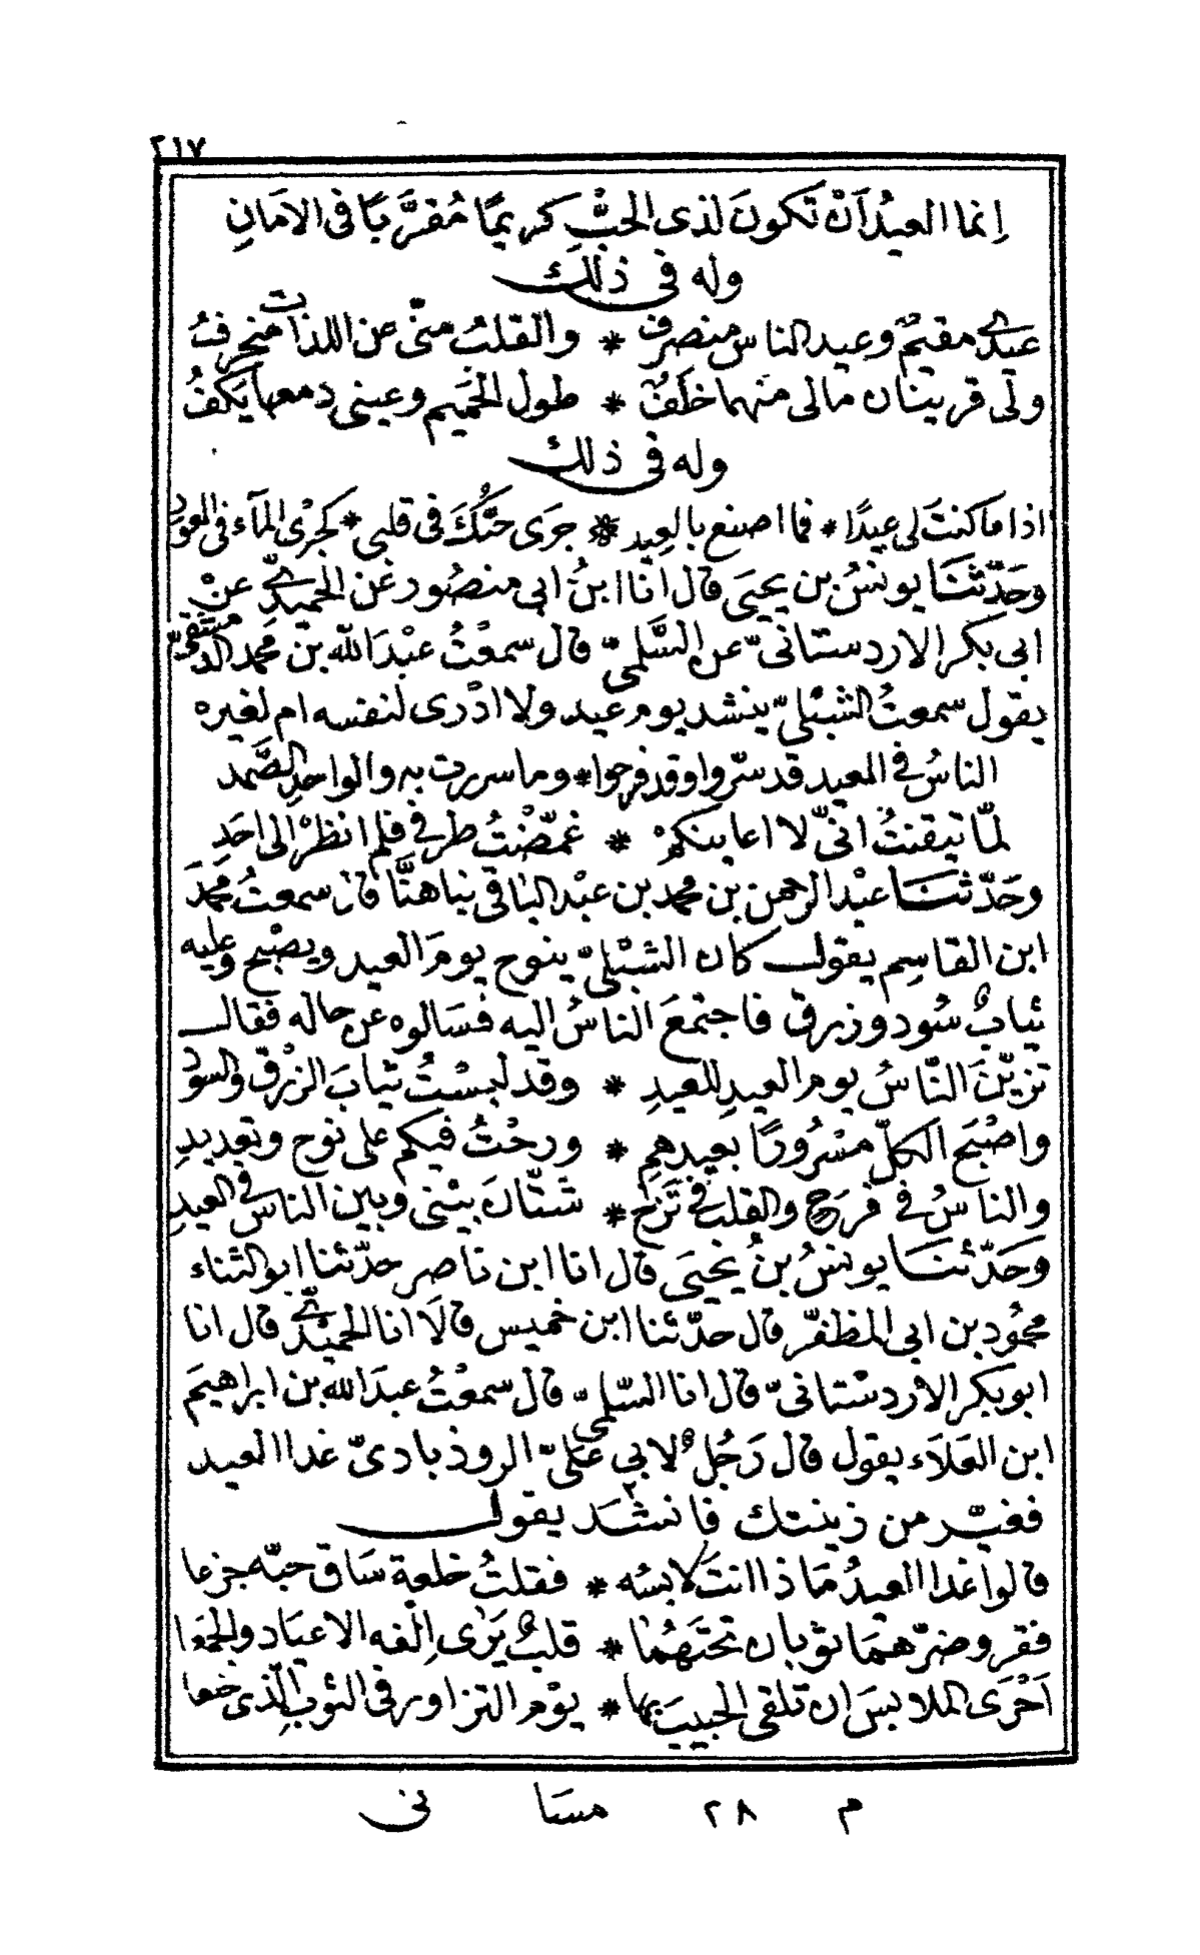 ٢١٧
اِنما العيدُ اَنْ تكونَ لذى الحبِّ كريمًا مُقرَّبًا فى الامَانِ
وله فى ذلك
عيدى مقيمٌ وعيد الناس منصرف * والقلبُ منّى عن اللذات منحرفُ
ولى قرينان مالى منهما خلَفٌ * طول الحَميم وعينى دمعها يَكفُ
وله فى ذلك
اذا ما كنتَ لى عيدًا * فما اصنع بالعيد * جَرَى حبُّكَ فى قلبى * كجَرْى المآء فى العود
وحَدّثنَا يونسُ بن يحيَى قال انا ابنُ ابى منصُور عَن الحميدىّ عنْ
ابى بكر الاردستانىّ عن السَّلمىّ قال سمعْتُ عبْدَ الله بن محمد الدمشقىّ
يقول سمعتُ الشبْلىّ ينشد يوم عيد ولا ادْرى لنفسه ام لغيره
الناسُ فى العيد قد سرّوا وقد فرحوا * وما سررت به والواحدِ الصَّمد
لمّا تيقنتُ انىّ لا اعاينكمْ * غمّضْتُ طرفى فلم انظرْ الى احَدِ
وحَدّثنَا عبْد الرحمن بن محمد بن عبْد الباقى بباهنَّا قال سمعتُ محمدَ
ابن القاسِم يقول كان الشبْلىّ ينوح يومَ العيد ويصْبح وعليه
ثيابٌ سُود وزرق فاجتمعَ الناسُ اليه فسَالوه عن حاله فقال
تزيّنَ النّاسُ يوم العيدِ للعيدِ * وقد لبسْتُ ثيابَ الزرْق والسود
واصْبَحَ الكلّ مسْرُورًا بعيدهمِ * ورحْتُ فيكم على نوح وتعديدِ
والناسُ فى فرَحٍ والقلبُ فى تَرَح * شتّانَ بيْنى وبين الناس فى العيدِ
وَحَدّثنَا يونسُ بنُ يحْيَى قال انا ابن ناصر حدّثنا ابو الثناء
محمُود بن ابى المظفّر قال حدّثنا ابن خميس قالَا انا الحميْدىّ قال انا
ابو بكر الاردسْتانىّ قال انا السّلمىّ قال سمعْتُ عبدَ الله بن ابراهيمَ
ابن العَلَاء يقول قال رَجُلٌ لابى عَلىّ الروذبادىّ غدا العيد
فغيّر من زينتك فانشَد يقول
قالوا غدا العيدُ مَاذا انتَ لابسُه * فقلتُ خلعة سَاق حبّه جزعا
فقر وضرّ همَا ثوبان تحتَهُما * قلبٌ يَرَى اِلْفه الاعيَاد والجمَعَا
اَحْرَى الملابسَ ان تلقى الحبيبَ بها * يوْم التزاور فى الثوب الّذى خلعا
م ٢٨ مسَا نى